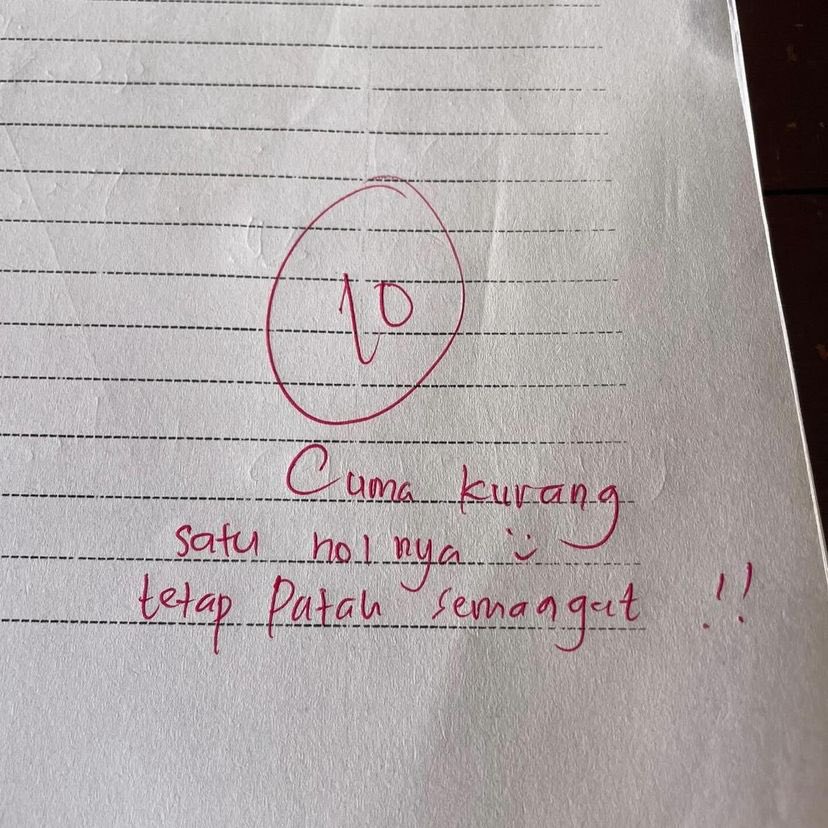 10
Cuma kurang
satu nolnya :)
tetap Patah semangat !!